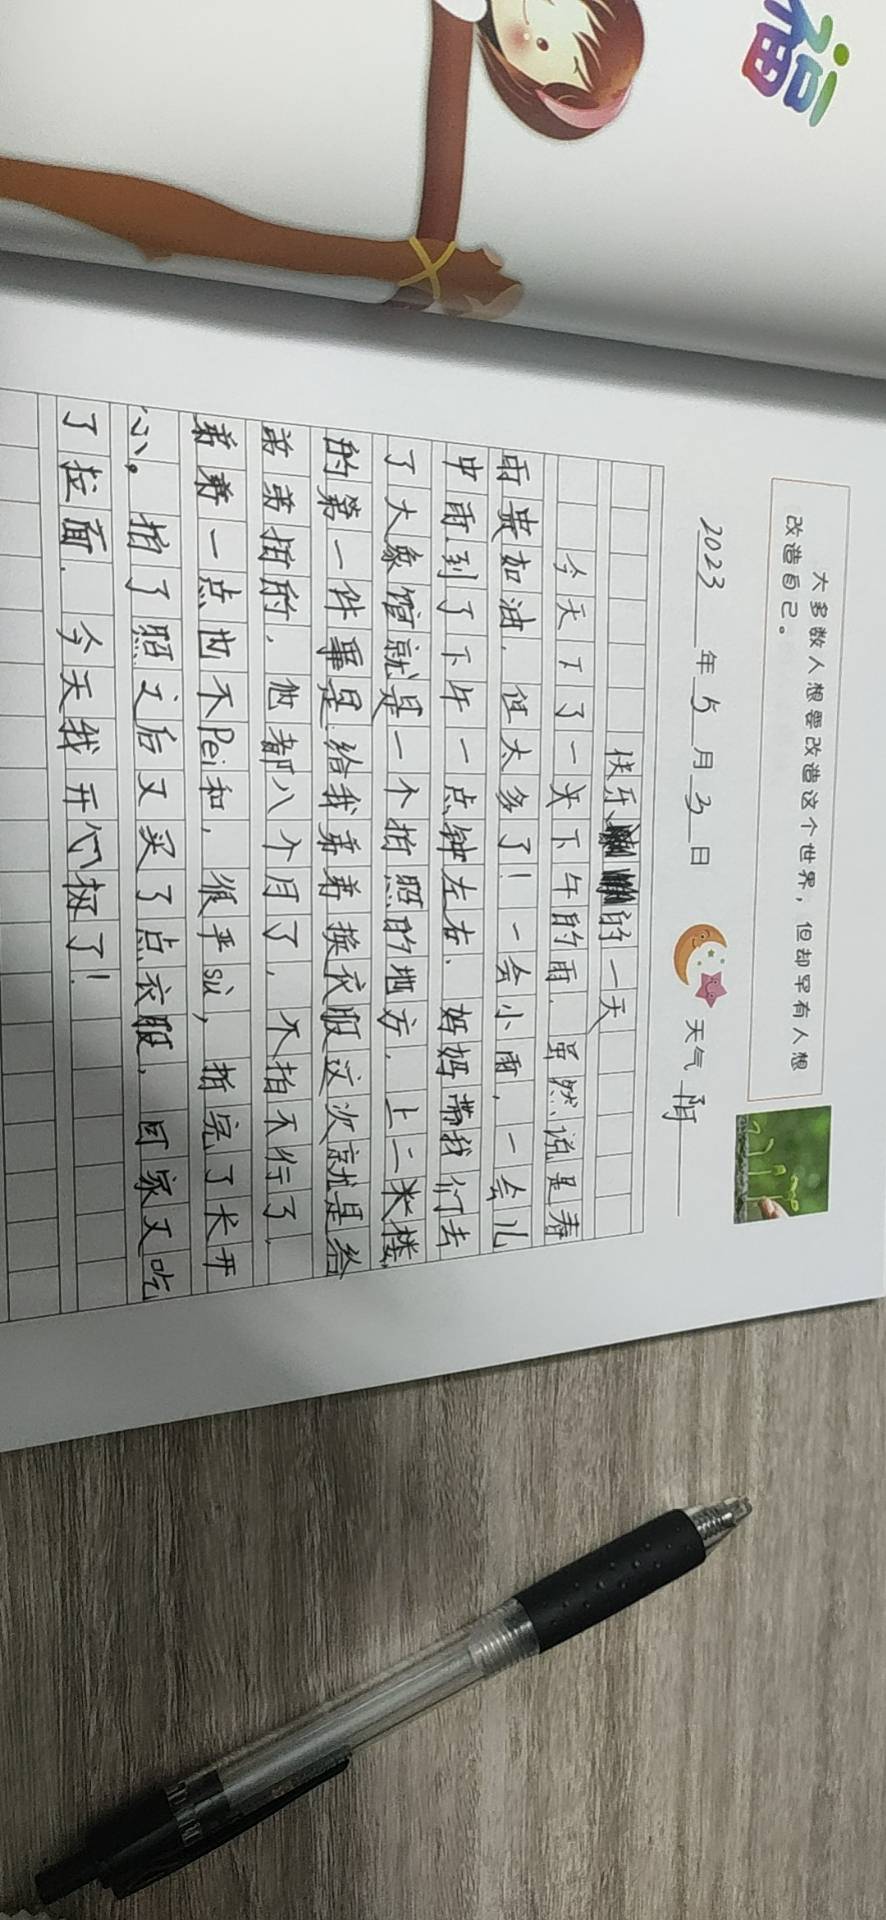 福
大多数人想要改造这个世界，但却罕有人想
改造自己。
2023年5月3日 天气 阴
快乐的一天
今天下了一天下午的雨.虽然说是春
雨贵如油，但太多了！一会小雨，一会儿
中雨.到了下午一点钟左右.妈妈带我们去
了大象馆就是一个拍照的地方，上二楼
的第一件事是给我弟弟换衣服这次就是给
弟弟拍的，他都八个月了，不拍不行了，
弟弟一点也不Pei和，很严sù，拍完了才开
心。拍了照之后又买了点衣服，回家又吃
了拉面.今天我开心极了！